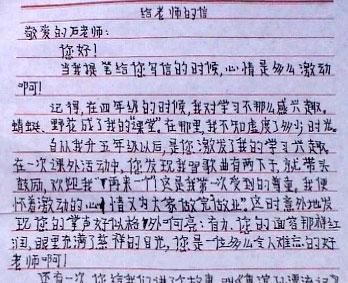 给老师的信
敬爱的石老师:
您好!
当我提笔给您写信的时候,心情是多么激动
啊!
记得,在四年级的时候,我对学习不那么感兴趣。
蜻蜓、野花成了我的"课堂"。在那里,我不知虚度了多少时光。
自从我升五年级以后,是您激发了我的学习兴趣。
在一次课外活动中,您发现我唱歌曲有两下子,就带头
鼓励,欢迎我"再来一个"这是我第一次受到的尊重,我便
怀着激动的心情又为大家做完做业"这时意外地发
现您的掌声好似格外响亮:有力,您的面容那样红
润,眼里充满了慈祥的目光,您是一位多么令人难忘的好
老师啊!
还有一次,您给我们讲了个故事,叫